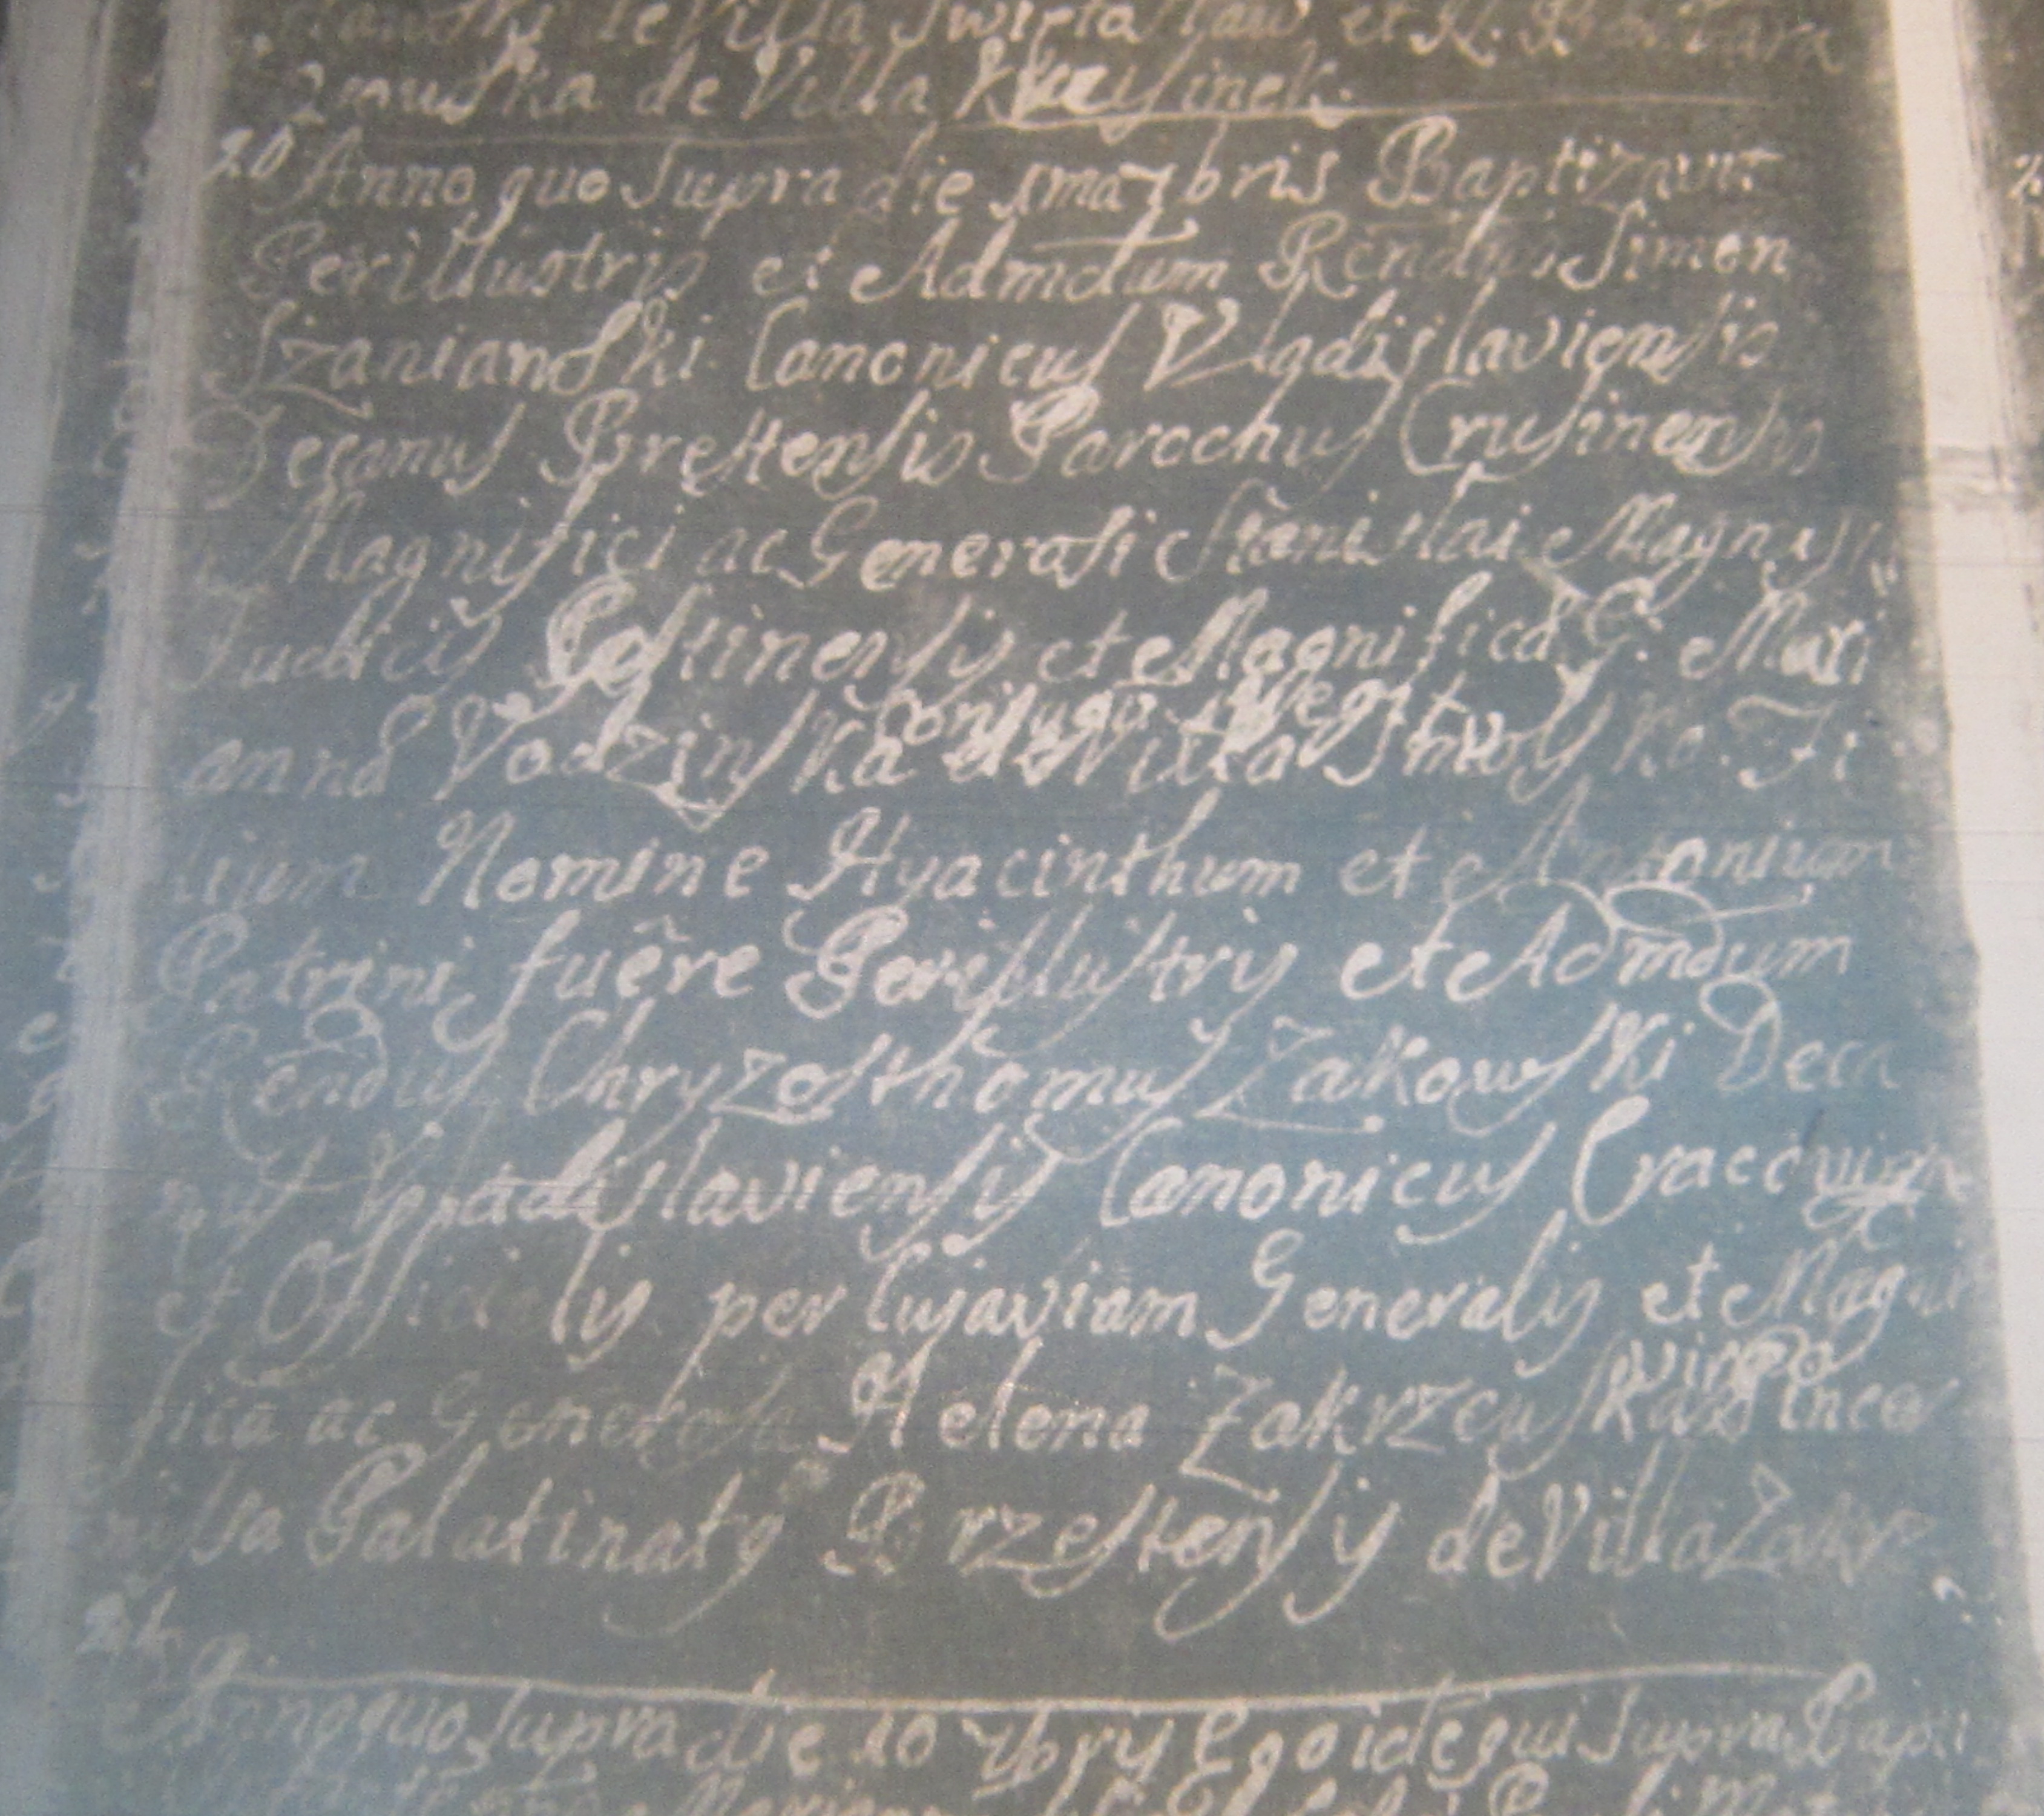 de Villa Swięta Xaw et
de Villa Krusinek.
20 Anno quo Supra die 1ma 7bris Baptizavit
Perillustris et Admdum Rēndus Simon
Szaniawski Canonicus Vladislaviensis
Decanus Brestensis Parochus Crusinensis
Magnifici ac Generosi Stanislai
Judicis et Magnifica G. Mari
anna Vodzinska Coniugu de Villa Smolsko. Fi
lium Nomine Hyacinthum et Antonium
Patrini fuêre Perillustris et Admodum
Rēndus Chryzosthomus Zakowski Deca
nus Vladislaviensis Canonicus Cracovien
et Officialis per Cujaviam Generalis et Magni
fica ac Generosa Helena Zakrzewska Virgo
Palatinaty Brzestensis de Villa
Anno quo Supra die 10 7brys Ego idē qui Supra Bapti